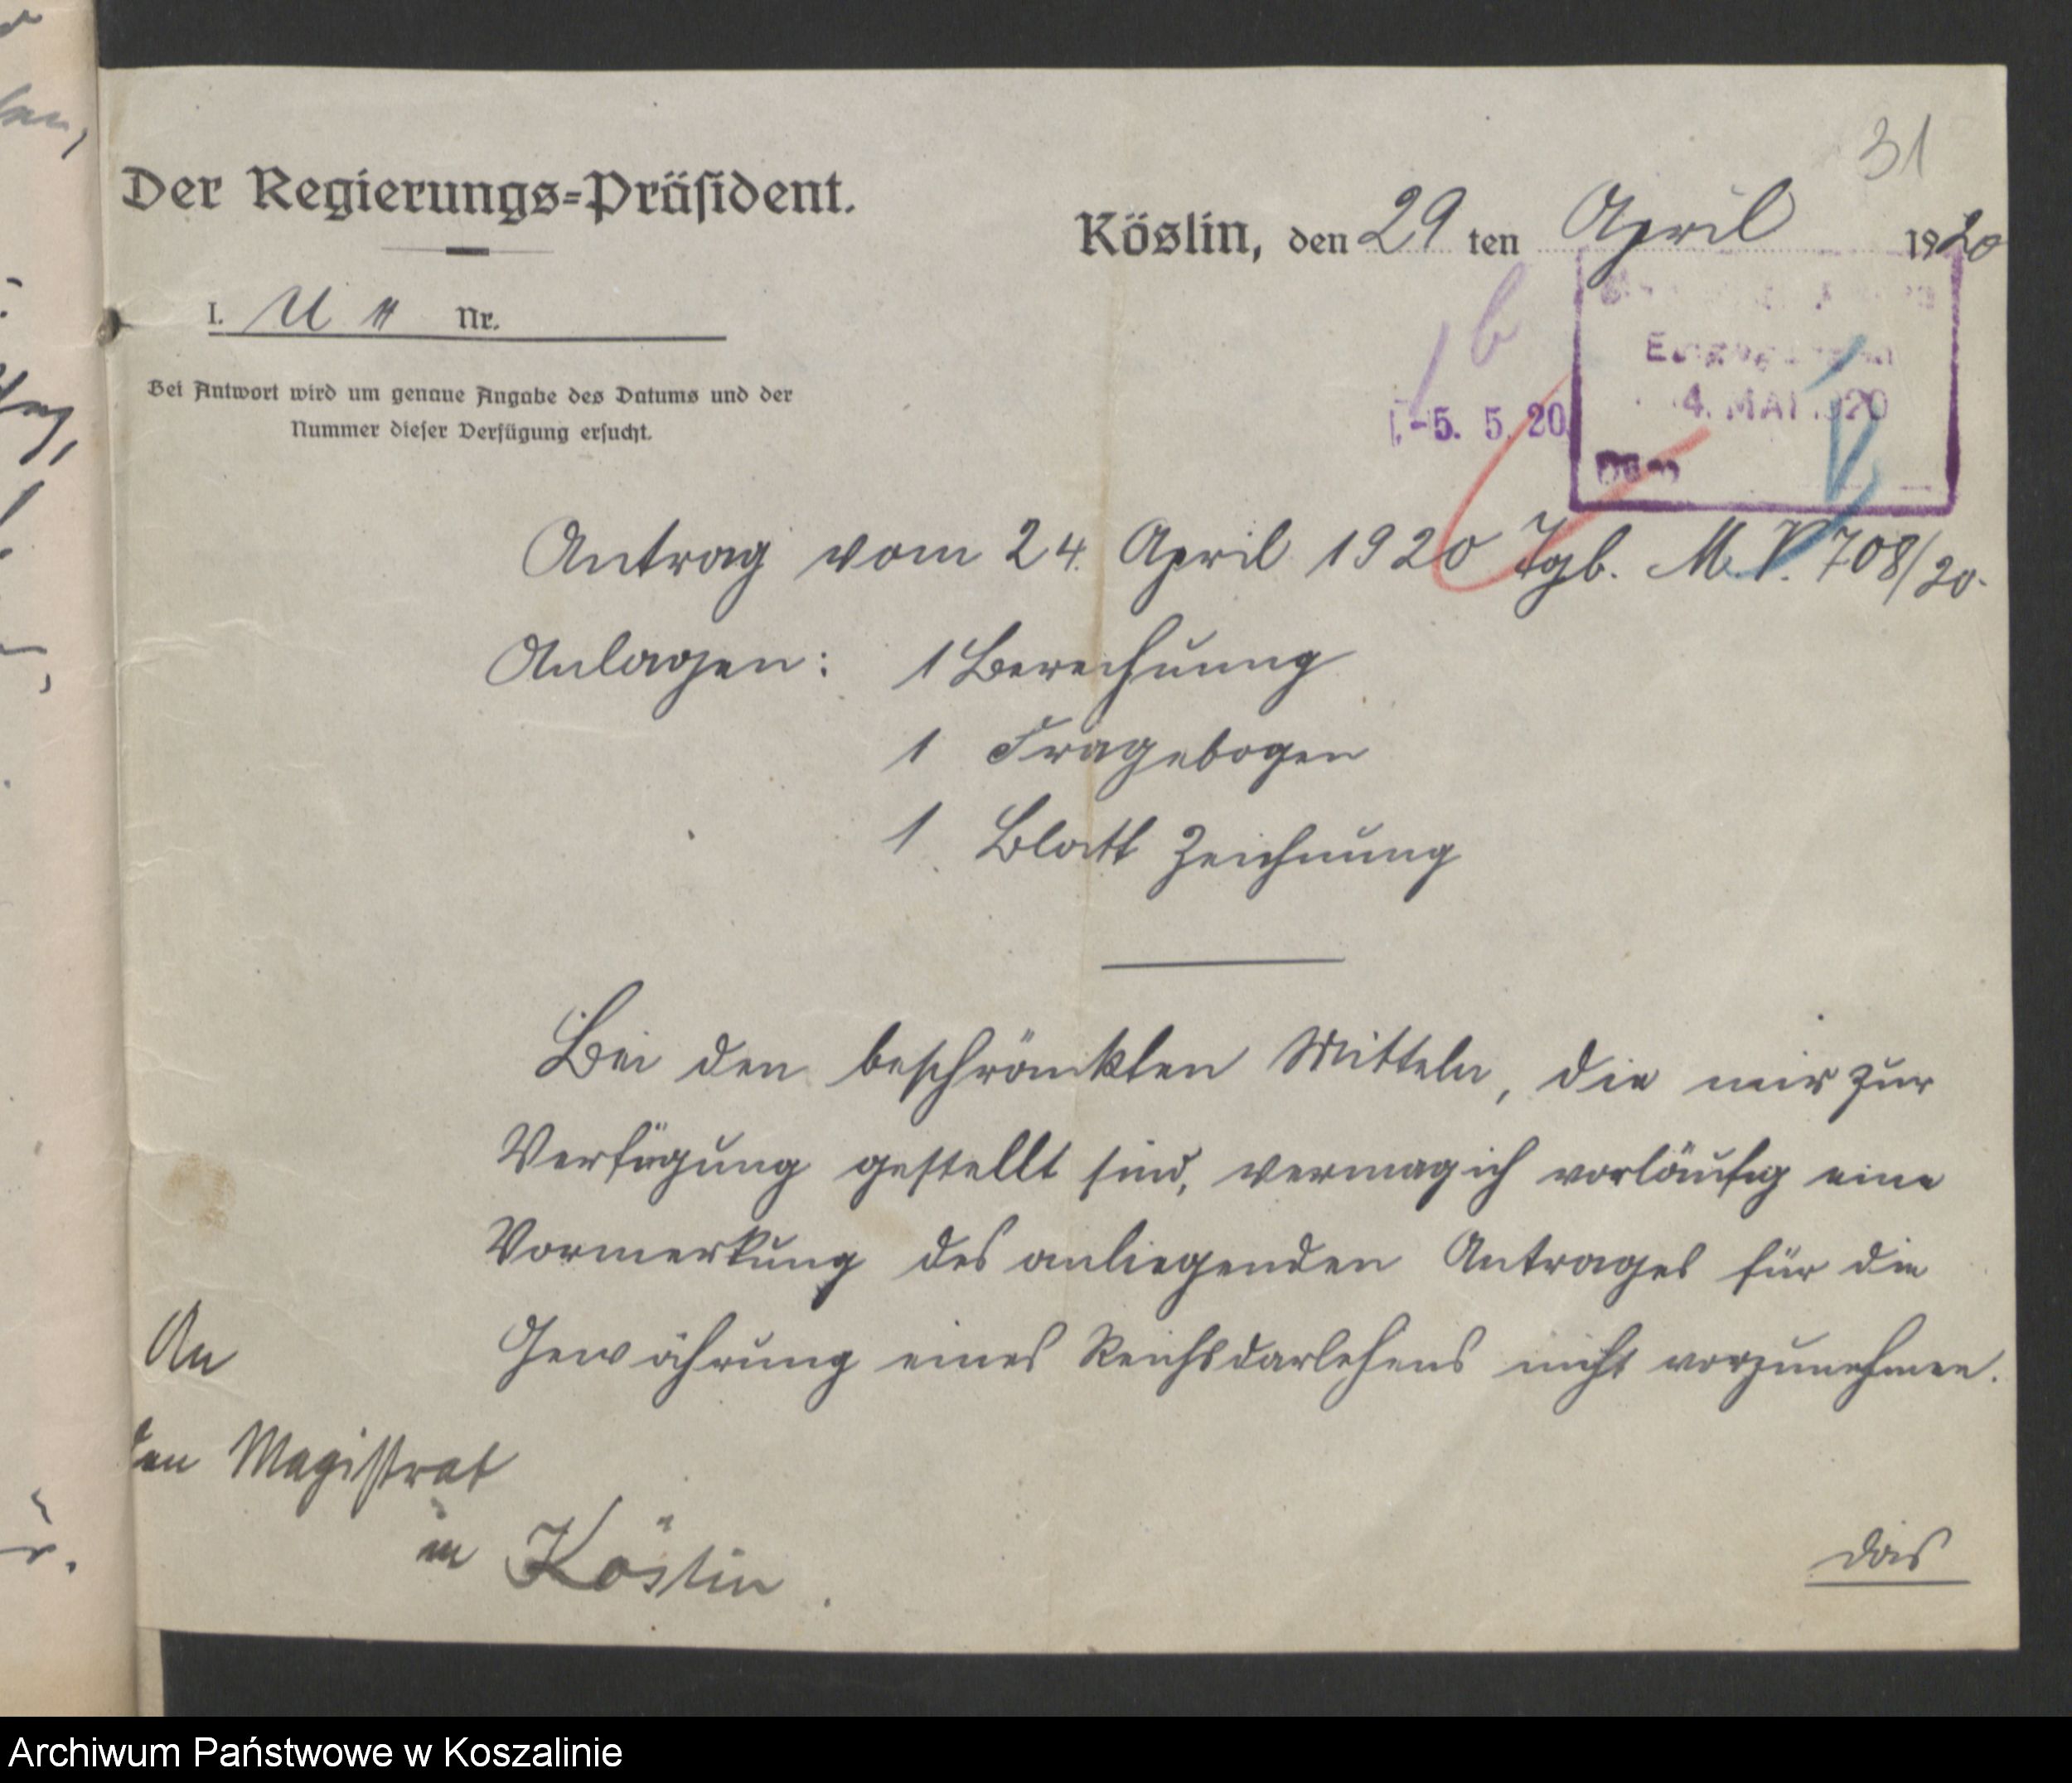 31
Der Regierungs=Präsident.
Köslin, den 29 ten April 1920
I. U Nr.
Bei Antwort wird um genaue Angabe des Datums und der
Nummer dieser Verfügung ersucht.
4. MAI 1920
-5. 5. 20
Antrag vom 24. April 1920 Tgb. M. V. 708/20.
Anlagen: 1 Berechnung
1 Fragebogen
1 Blatt Zeichnung
Bei den beschränkten Mitteln, die mir zur
Verfügung gestellt sind, vermag ich vorläufig eine
Vormerkung des anliegenden Antrages für die
Gewährung eines Reichsdarlehens nicht vorzunehmen.
An
den Magistrat
in Köslin.
das
Archiwum Państwowe w Koszalinie